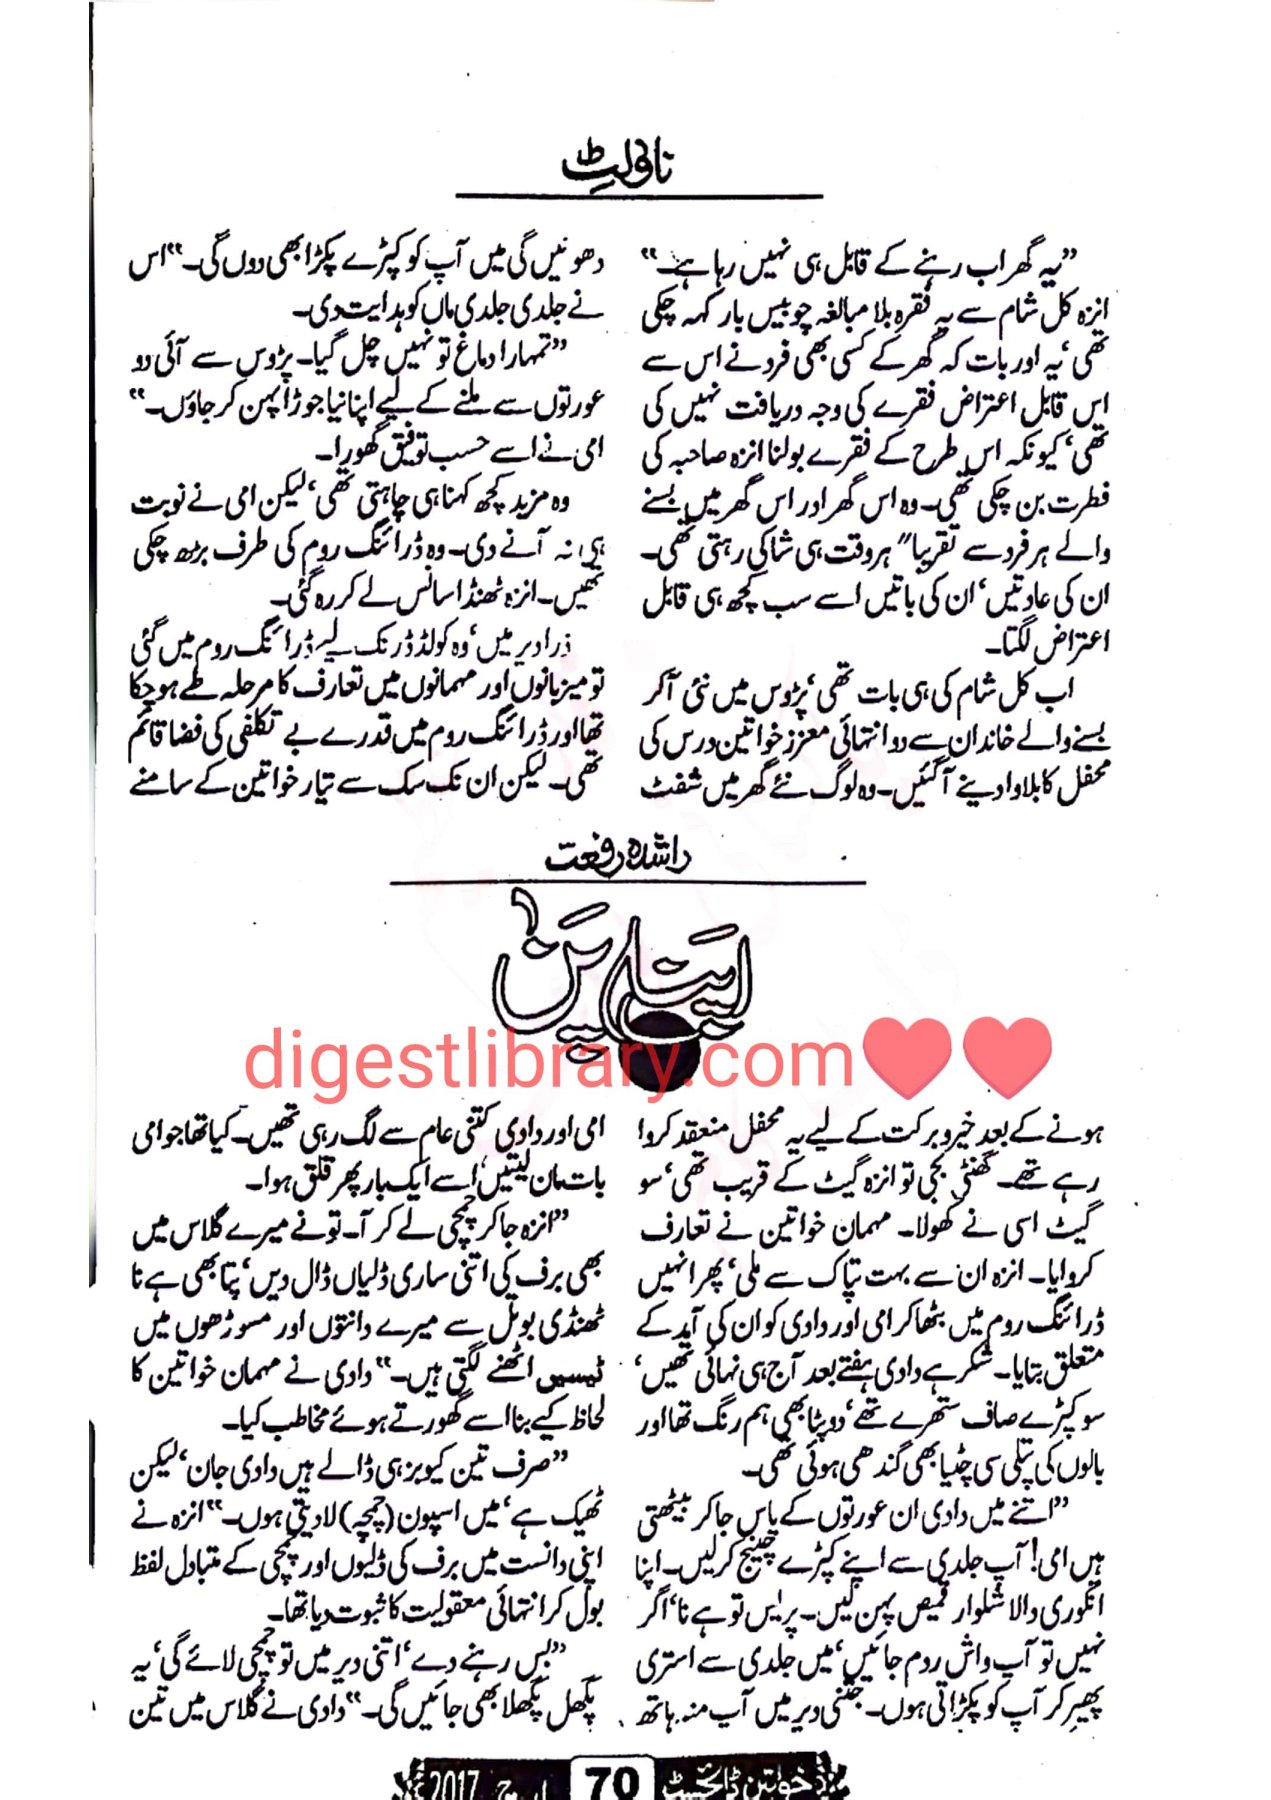 ناولٹ
”یہ گھر اب رہنے کے قابل ہی نہیں رہا ہے۔“
انزہ کل شام سے یہ فقرہ بلا مبالغہ چوبیس بار کہہ چکی
تھی‘ یہ اور بات کہ گھر کے کسی بھی فرد نے اس سے
اس قابل اعتراض فقرے کی وجہ دریافت نہیں کی
تھی‘ کیونکہ اس طرح کے فقرے بولنا انزہ صاحبہ کی
فطرت بن چکی تھی۔ وہ اس گھر اور اس گھر میں بسنے
والے ہر فرد سے تقریبا" ہر وقت ہی شاکی رہتی تھی۔
ان کی عادتیں‘ ان کی باتیں اسے سب کچھ ہی قابل
اعتراض لگتا۔
اب کل شام کی ہی بات تھی‘ پڑوس میں نئی آکر
بسنے والے خاندان سے دو انتہائی معزز خواتین درس کی
محفل کا بلاوا دینے آگئیں۔ وہ لوگ نئے گھر میں شفٹ
دھوئیں گی میں آپ کو کپڑے پکڑا بھی دوں گی۔“ اس
نے جلدی جلدی ماں کو ہدایت دی۔
”تمہارا دماغ تو نہیں چل گیا۔ پڑوس سے آئی دو
عورتوں سے ملنے کے لیے اپنا نیا جوڑا پہن کر جاؤں۔“
امی نے اسے حسب توفیق گھورا۔
وہ مزید کچھ کہنا ہی چاہتی تھی‘ لیکن امی نے نوبت
ہی نہ آنے دی۔ وہ ڈرائنگ روم کی طرف بڑھ چکی
تھیں۔ انزہ ٹھنڈا سانس لے کر رہ گئی۔
ذرا دیر میں‘ وہ کولڈ ڈرنک لیے ڈرائنگ روم میں گئی
تو میزبانوں اور مہمانوں میں تعارف کا مرحلہ طے ہوچکا
تھا اور ڈرائنگ روم میں قدرے بے تکلفی کی فضا قائم
تھی۔ لیکن ان تک سک سے تیار خواتین کے سامنے
راشدہ رفعت
اپنا اپن
digestlibrary.com❤❤
ہونے کے بعد خیروبرکت کے لیے یہ محفل منعقد کروا
رہے تھے۔ گھنٹی بجی تو انزہ گیٹ کے قریب تھی‘ سو
گیٹ اسی نے کھولا۔ مہمان خواتین نے تعارف
کروایا۔ انزہ ان سے بہت تپاک سے ملی‘ پھر انہیں
ڈرائنگ روم میں بٹھا کر امی اور دادی کو ان کی آمد کے
متعلق بتایا۔ شکر ہے دادی ہفتے بعد آج ہی نہائی تھیں‘
سو کپڑے صاف ستھرے تھے‘ دوپٹا بھی ہم رنگ تھا اور
بالوں کی پتلی سی چٹیا بھی گندھی ہوئی تھی۔
”اتنے میں دادی ان عورتوں کے پاس جاکر بیٹھتی
ہیں امی! آپ جلدی سے اپنے کپڑے چینج کرلیں۔ اپنا
انگوری والا شلوار قمیص پہن لیں۔ پریس تو ہے نا‘ اگر
نہیں تو آپ واش روم جائیں‘ میں جلدی سے استری
پھیر کر آپ کو پکڑاتی ہوں۔ جتنی دیر میں آپ منہ ہاتھ
امی اور دادی کتنی عام سے لگ رہی تھیں۔ کیا تھا جو امی
بات مان لیتیں‘ اسے ایک بار پھر قلق ہوا۔
”انزہ جاکر چمچی لے کر آ۔ تو نے میرے گلاس میں
بھی برف کی اتنی ساری ڈلیاں ڈال دیں‘ پتا بھی ہے نا
ٹھنڈی بوتل سے میرے دانتوں اور مسوڑھوں میں
ٹیسیں اٹھنے لگتی ہیں۔“ دادی نے مہمان خواتین کا
لحاظ کیے بنا اسے گھورتے ہوئے مخاطب کیا۔
”صرف تین کیوبز ہی ڈالے ہیں دادی جان‘ لیکن
ٹھیک ہے‘ میں اسپون (چمچہ) لادیتی ہوں۔“ انزہ نے
اپنی دانست میں برف کی ڈلیوں اور چمچی کے متبادل لفظ
بول کر انتہائی معقولیت کا ثبوت دیا تھا۔
”بس رہنے دے‘ اتنی دیر میں تو چمچی لائے گی‘ یہ
پگھل پگھلا بھی جائیں گی۔“ دادی نے گلاس میں تین
خواتین ڈائجسٹ 70 مارچ 2017ء